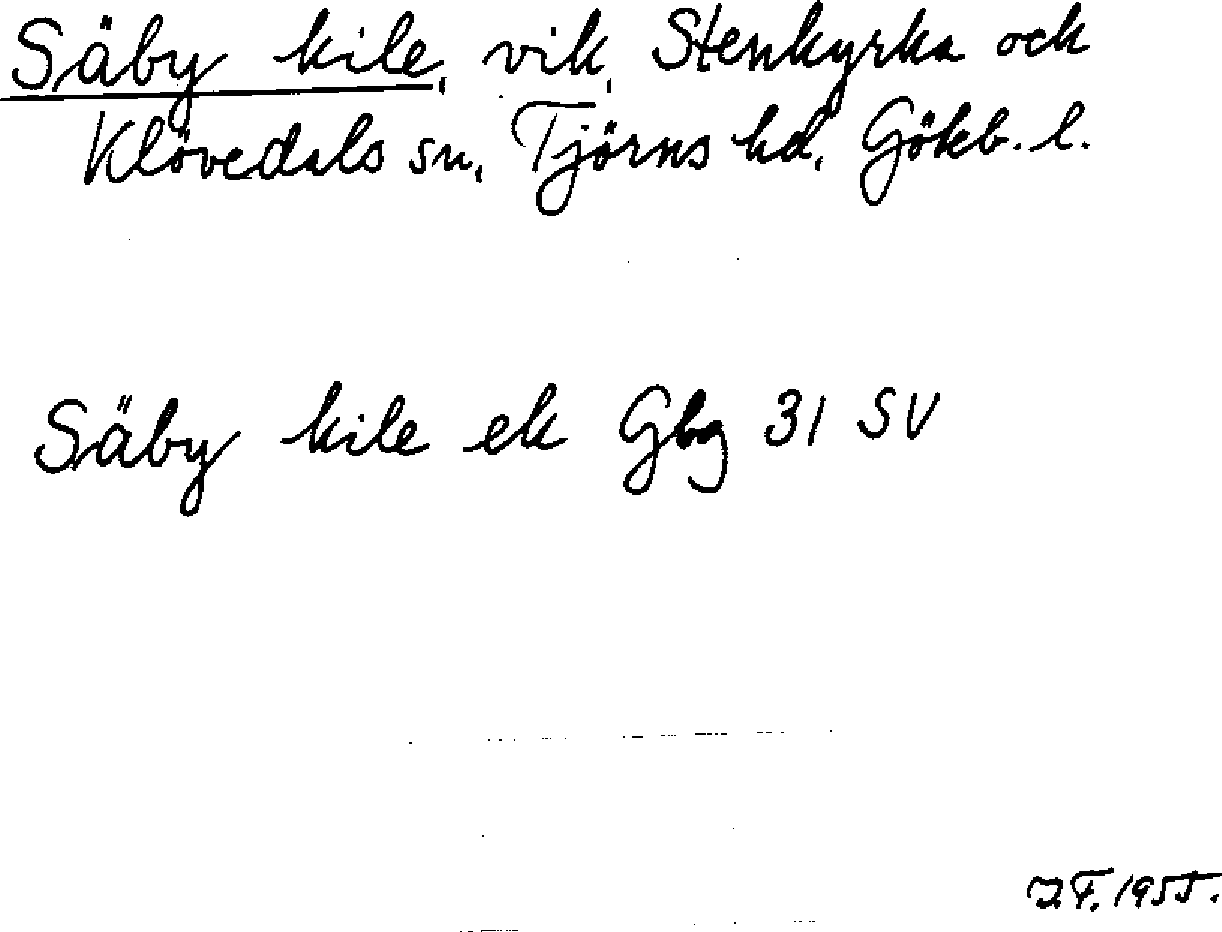 Säby kile, vik, Stenkyrka och
Klövedals sn, Tjörns hd, Gökb. l.
Säby kile ek Gbg 31 SV
J.F. 1955.